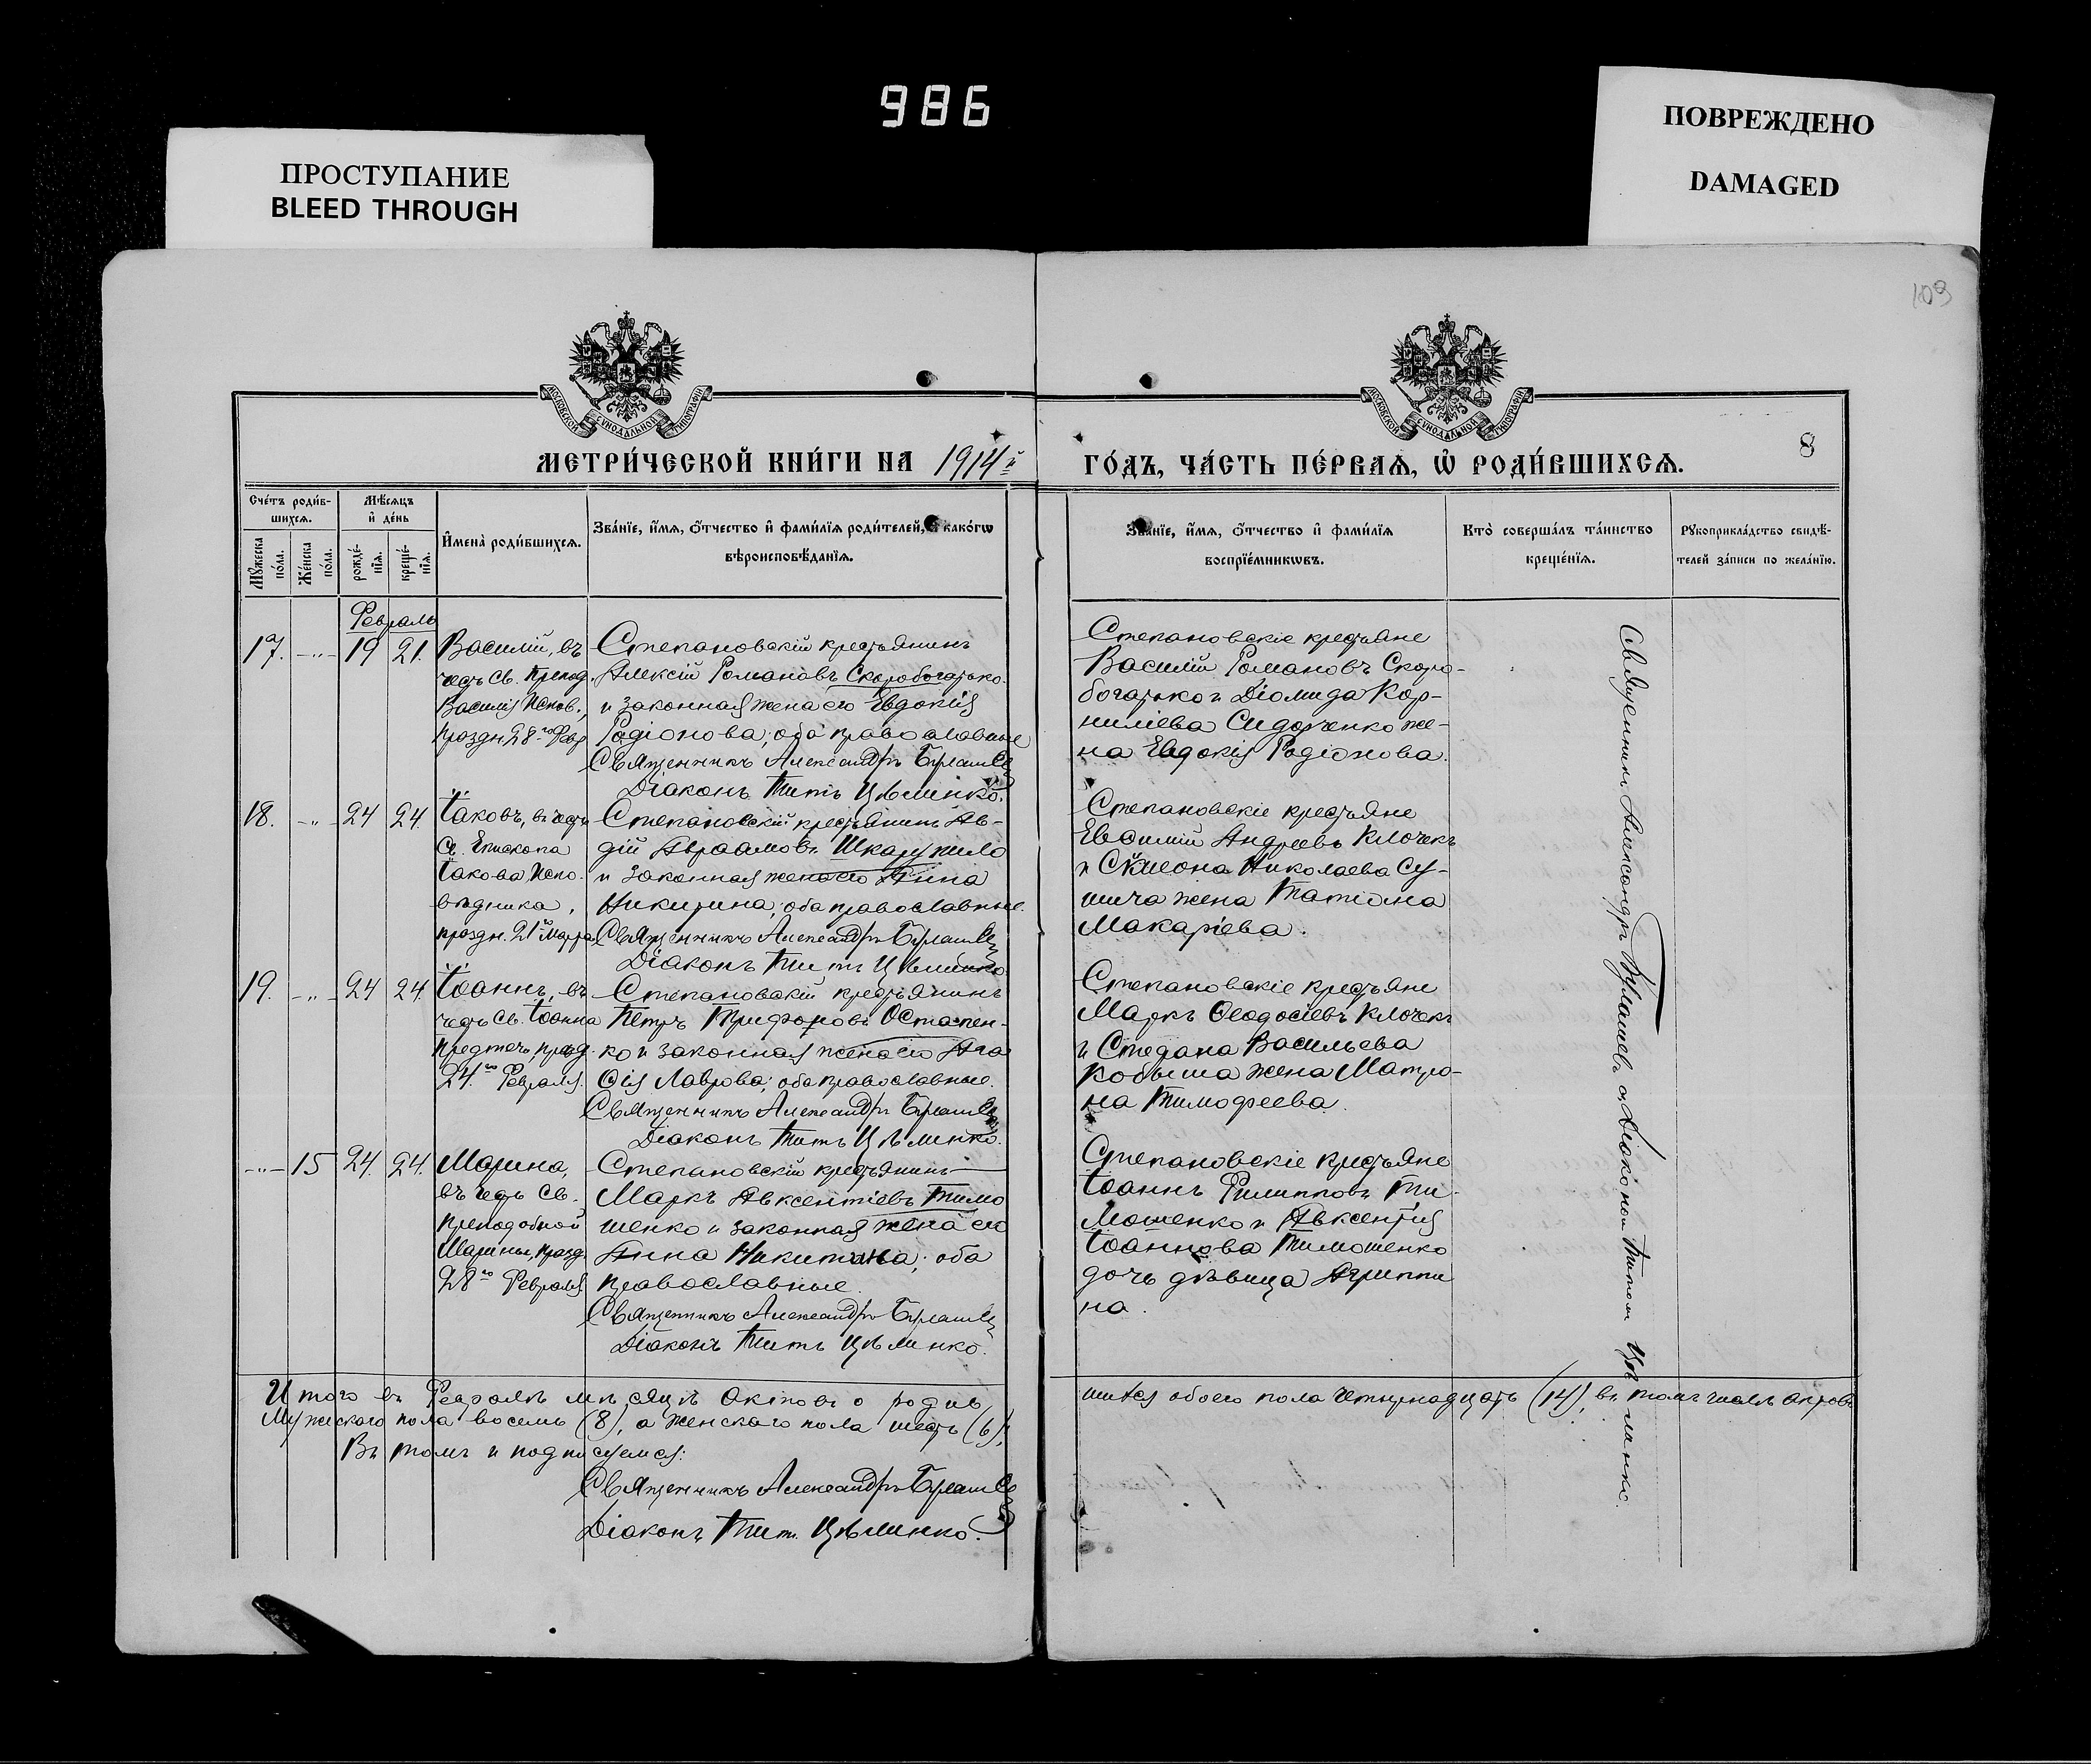 986
ПРОСТУПАНИЕ
BLEED THROUGH
ПОВРЕЖДЕНО
DAMAGED
109
МОСКОВСКОЙ СУНОДАЛЬНОЙ ТИПОГРАФІИ
МОСКОВСКОЙ СУНОДАЛЬНОЙ ТИПОГРАФІИ
МЕТРИ́ЧЕСКОЙ КНИ́ГИ НА 1914й
ГО́ДЪ, ЧА́СТЬ ПЕ́РВАѦ, Ѡ҆ РОДИ́ВШИХСѦ.
8
Сче́тъ роди́в-
шихсѧ.
Мѣ́сѧцъ
и҆ де́нь
Мꙋ́жеска
по́ла.
Же́нска
по́ла.
рожде́-
нїѧ.
креще́-
нїѧ.
И҆мена̀ роди́вшихсѧ.
Зва́нїе, и҆́мѧ, ѻ҆́тчество и҆ фами́лїѧ роди́телей, и҆ како́гѡ
вѣроисповѣ́данїѧ.
Зва́нїе, и҆́мѧ, ѻ҆́тчество и҆ фами́лїѧ
воспрїе́мникѡвъ.
Кто̀ соверша́лъ та́инство
креще́нїѧ.
Рꙋкоприкла́дство свидѣ́-
телей за́писи по жела́нїю.
Февраль
17. -"- 19 21.
Василій, въ
честь св. Препод.
Василія Испов.,
праздн. 28го Февр
Степановскій крестьянинъ
Алексій Романовъ Скоробогатько
и законная жена его Евдокія
Родіонова; оба православные
Священникъ Александръ Бугашев
Діаконъ Титъ Цѣлинко.
Степановскіе крестьяне
Василій Романовъ Скоро-
богатько и Діомида Кор-
ниліева Сидорченко же-
на Евдокія Родіонова.
18. -"- 24 24.
Іаковъ, въ честь
св. Епископа
Іакова Испо-
вѣдника,
праздн. 21го Марта
Степановскій крестьянинъ Ав-
дій Авраамовъ Шкарупило
и законная жена его Анна
Никитина; оба православные.
Священникъ Александръ Бугашев
Діаконъ Титъ Цѣлинко
Степановскіе крестьяне
Евѳимій Андреевъ Клочекъ
и Симеона Николаева Су-
жена Татіана
Макаріева.
19. -"- 24 24.
Іоаннъ, въ
честь св. Іоанна
Предтечи, празд.
24го Февраля.
Степановскій крестьянинъ
Петръ Трифоновъ Остапен-
ко и законная жена его Ага-
ѳія Лаврова; оба православные.
Священникъ Александръ Бугашев
Діаконъ Титъ Цѣлинко.
Степановскіе крестьяне
Маркъ Ѳеодосіевъ Клочекъ
и Стефана Васильева
жена Матро-
на Тимофеева.
-"- 15 24. 24.
Марина,
въ честь св.
Преподобной
Марины, празд.
28го Февраля
Степановскій крестьянинъ
Маркъ Авксентіевъ Тимо
шенко и законная жена его
Анна Никитина; оба
православные.
Священникъ Александръ Бугашев
Діаконъ Титъ Цѣлинко.
Степановскіе крестьяне
Іоаннъ Филипповъ Ти-
мошенко и Авксентія
Іоаннова Тимошенко
дочь дѣвица Агриппи
на.
Священникъ Александръ Бугашевъ съ Діакономъ Титомъ Цѣлинко.
Итого въ Февралѣ мѣсяцѣ родив
шихся обоего пола четырнадцать (14), въ томъ числѣ
Мужескаго пола восемь (8), а женскаго пола шесть (6),
Въ томъ и подписуемся:
Священникъ Александръ Бугашев
Діаконъ Титъ Цѣлинко.